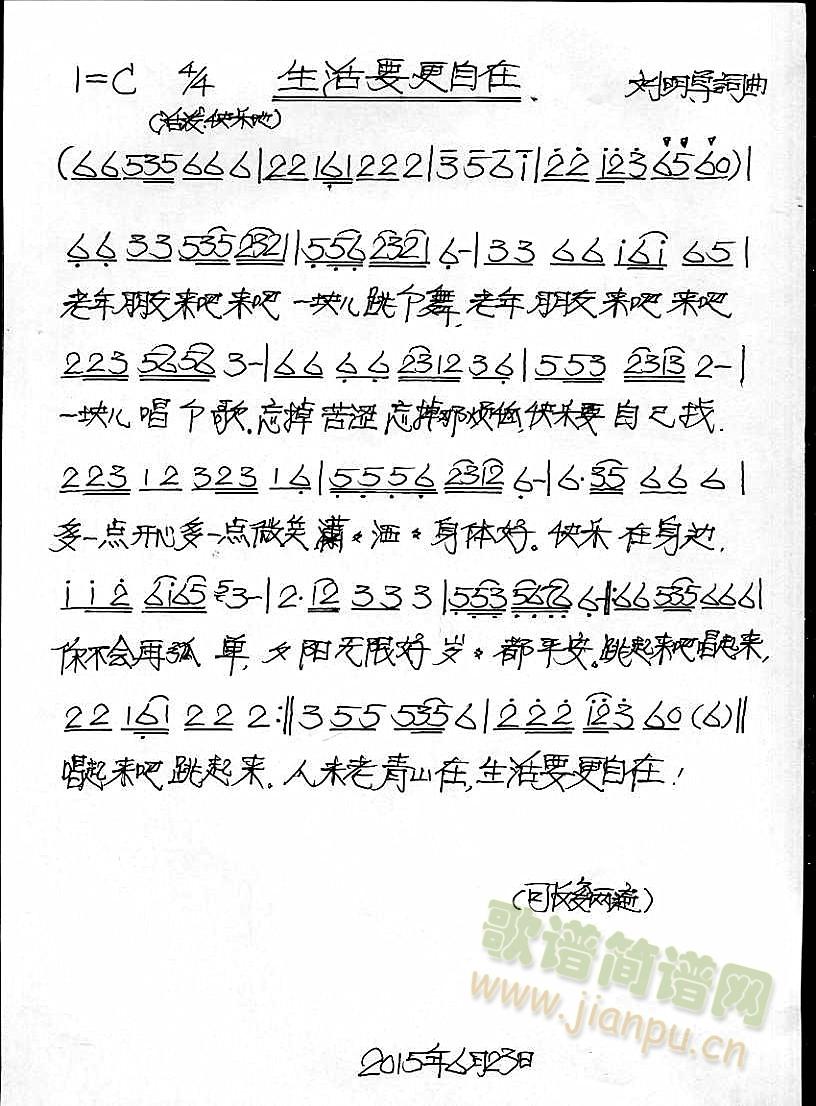 1=C 4/4 生活要更自在 刘明导词曲
(活泼、快乐地)
(6 6 5 3 5 6 6 6|2 2 1 6 1 2 2 2|3 5 6 i|2 2 i 2 3 6 5 6 0)|
6 6 3 3 5 3 5 2 3 2 1|5 5 6 2 3 2 1 6-|3 3 6 6 i 6 i 6 5|
老年朋友来吧来吧一块儿跳个舞,老年朋友来吧来吧
2 2 3 5 6 5 6 3-|6 6 6 6 2 3 1 2 3 6|5 5 3 2 3 1 3 2-|
一块儿唱个歌.忘掉苦涩忘掉那烦恼,快乐要自己找.
2 2 3 1 2 3 2 3 1 6|5 5 5 6 2 3 1 2 6-|6·3 5 6 6 6|
多一点开心多一点微笑潇洒身体好。快乐在身边,
i i 2 6 i 6 5 5 3-|2·1 2 3 3 3|5 5 3 5 6 7 6 6-‖:6 6 5 3 5 6 6 6|
你不会再孤单,夕阳无限好岁都平安。跳起来吧唱起来,
2 2 1 6 1 2 2 2:‖3 5 5 5 3 5 6|2 2 2 i 2 3 6 0(6)‖
唱起来吧跳起来。人未老青山在,生活要更自在!
(可反复两遍)
歌谱简谱网
www.jianpu.cn
2015年6月23日